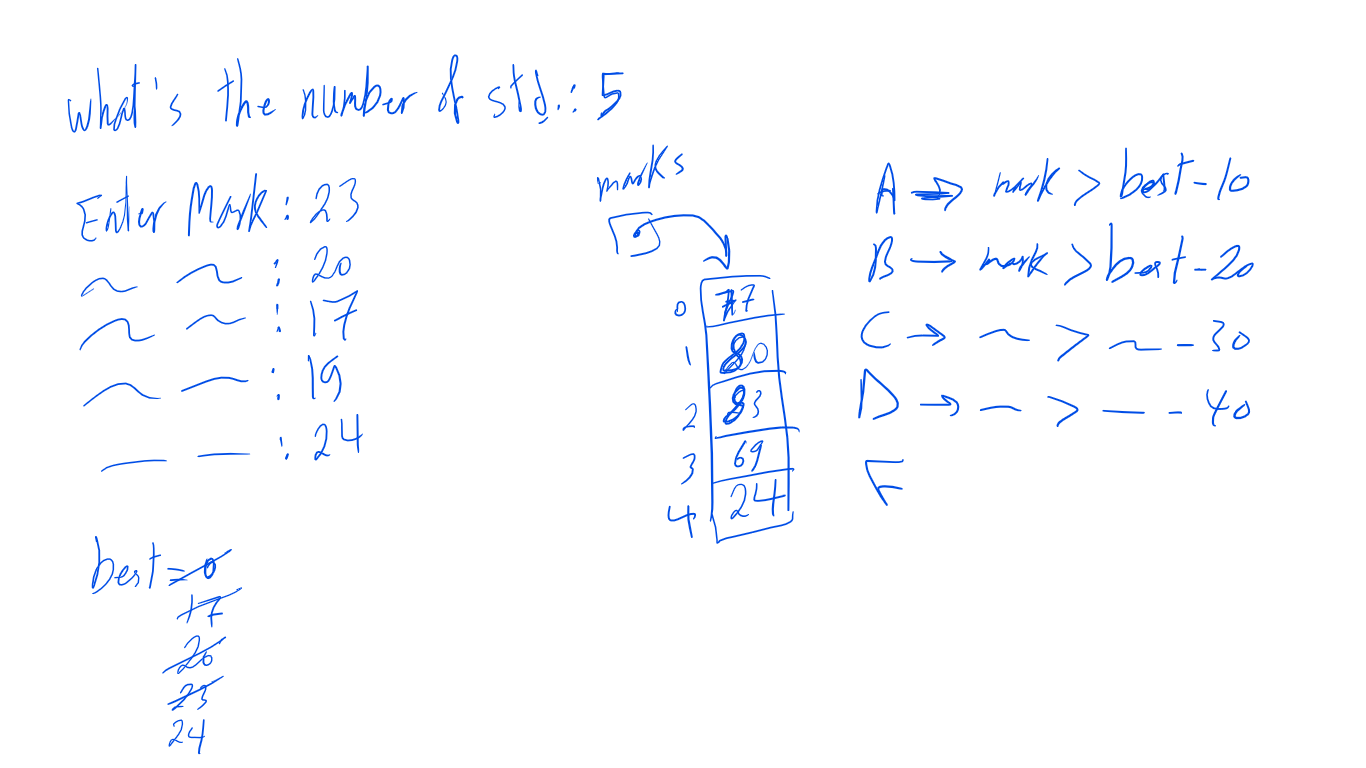 what's the number of std.: 5
Enter Mark: 23
: 20
: 17
: 19
: 24
best = 0
17
20
23
24
marks
0 77
1 80
2 83
3 69
4 24
A → mark > best - 10
B → mark > best - 20
C → ~ > ~ - 30
D → — > — - 40
F